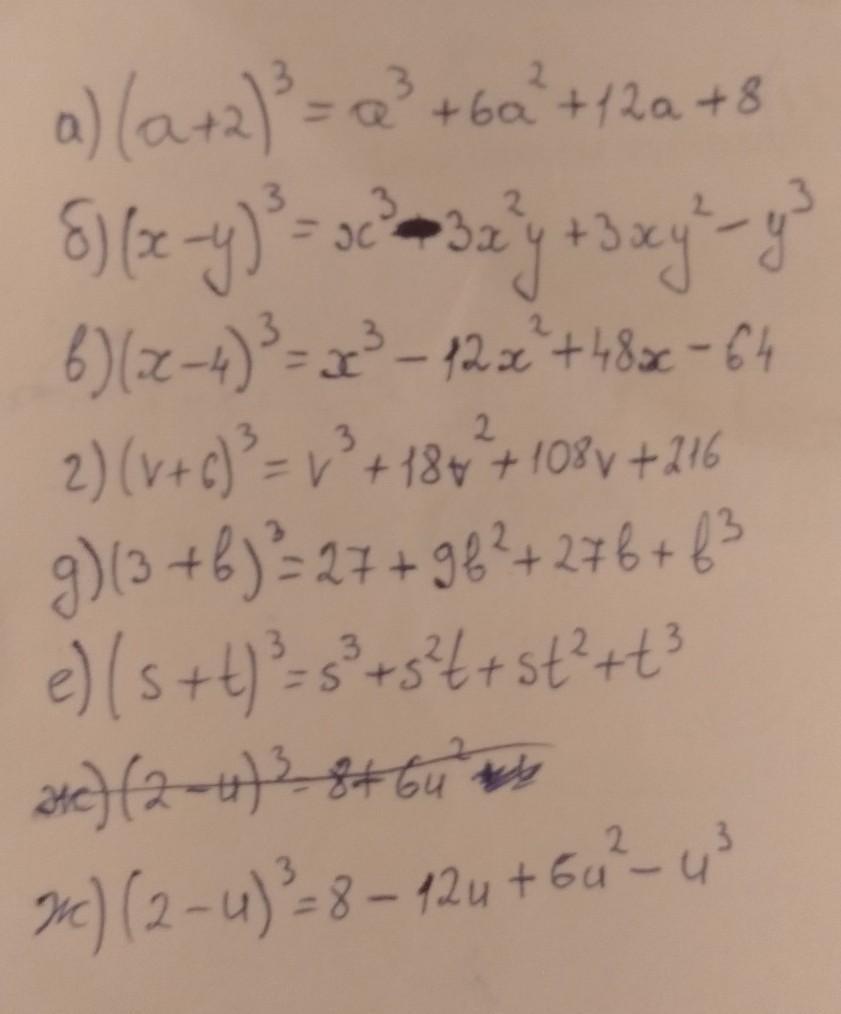 а) (a+2)³ = a³ + 6a² + 12a + 8
б) (x-y)³ = x³ - 3x²y + 3xy² - y³
в) (x-4)³ = x³ - 12x² + 48x - 64
г) (v+6)³ = v³ + 18v² + 108v + 216
д) (3+b)³ = 27 + 9b² + 27b + b³
е) (s+t)³ = s³ + s²t + st² + t³
ж) (2-u)³ = 8 + 6u²
ж) (2-u)³ = 8 - 12u + 6u² - u³